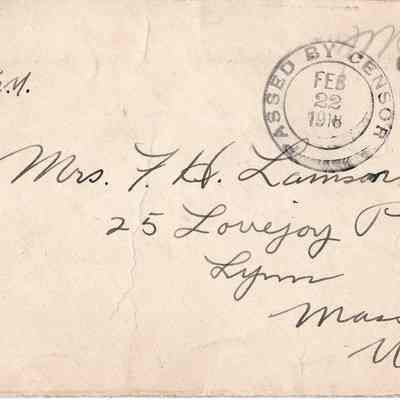 PASSED BY CENSOR
FEB
22
1918
Mrs. F. H. Lamson
25 Lovejoy P
Lynn
Mass
U